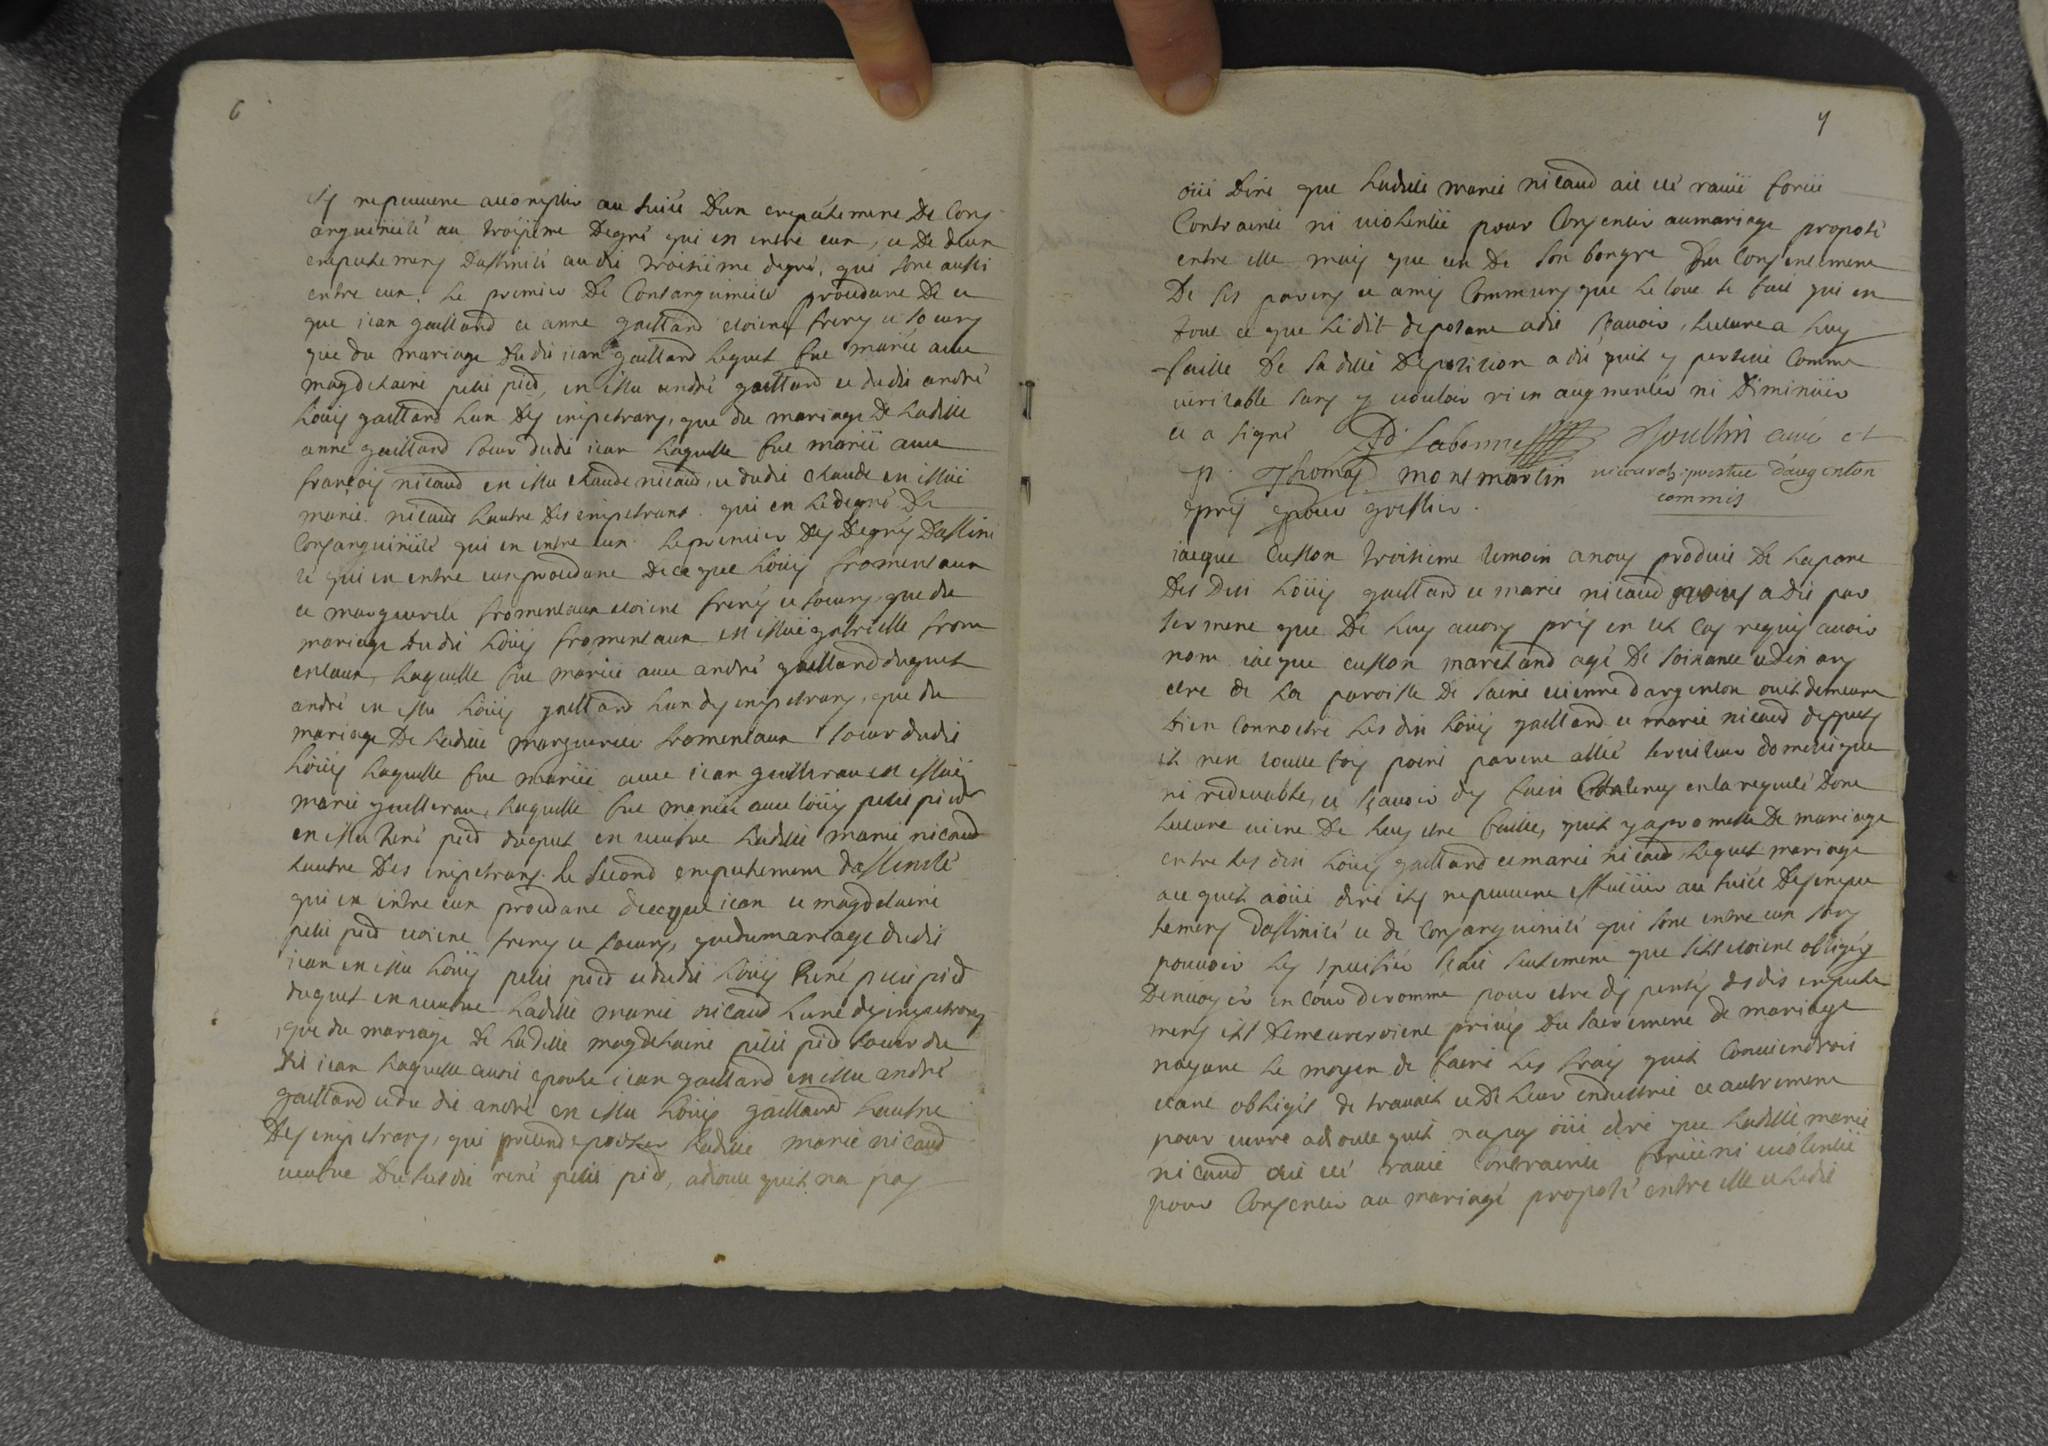 6
ils ne peuvent accomplir au suiet d'un empéchement De Cons
anguinité au troisieme Degré qui en entre eux, et De deux
empechemens D'affinité audit troisieme degré, qui sont aussi
entre eux. Le premier De Consanguinité procedant De ce
que iean gaillard et anne gaillard etoient freres et soeurs
que du mariage Dudit iean gaillard lequel fut marié avec
magdelaine petit pied, en issu andré gaillard et dudit andré
Loüis gaillard L'un Des impetrans, que du mariage De Laditte
anne gaillard soeur dudit iean Laquelle fut mariée avec
françois nicaud en issu claude nicaud, et dudit claude en issüe
marie nicaud L'autre Des impetrans qui en Le degré De
Consanguinité qui en entre eux. Le premier Des Degrés D'affini
té qui en entre eux procedant De ce que Loüis fromentaux
et marguerite fromentaux etoient freres et soeurs, que du
mariage Dudit Loüis fromentaux en issüe gabrielle from
entaux, Laquelle fut mariée avec andré gaillard duquel
andré en issu Loüis gaillard L'un des impetrans, que du
mariage De Laditte marguerite fromentaux soeur dudit
Loüis Laquelle fut mariée avec iean guilleraut en issüe
marie guilleraut, Laquelle fut mariée avec Loüis petit pied
en issu René pied duquel en veufve Laditte marie nicaud
L'autre Des impetrans. Le second empechement D'affinité
qui en entre eux procedant de ce que iean et magdelaine
petit pied etoient freres et soeurs, que du mariage dudit
iean en issu Loüis petit pied et dudit Loüis René petit pied
duquel en veufve Laditte marie nicaud L'une des impetrans
que du mariage De Laditte magdelaine petit pied soeur du
dit iean Laquelle aussi epousa iean gaillard en issu andré
gaillard et du dit andré en issu Loüis gaillard L'autre
Des impetrans, qui pretend epouser Laditte marie nicaud
veufve Du susdit rené petit pied, adioute qu'il n'a pas
7
oüi Dire que Laditte marie nicaud ait eté ravie forcée
Contrainte ni violentée pour Consentir au mariage proposé
entre elle mais que c'en De son bon gré Du Consentement
De ses parens et amis Communs que Le tout se fait qui en
tout ce que Le dit deposant a dit sçavoir, Lecture a Luy
faitte De sa ditte Deposition a dit qu'il y persiste Comme
veritable sans y vouloir rien augmenter ni Diminuer
et a signé Labonne curé et
p. Thomas montmartin vicaire d'argenton
commis
pris pour greffier.
iacque Cusson troisieme temoin a nous produit De La part
Des Dits Loüis gaillard et marie nicaud a dit par
serment que De Luy avons pris en tel Cas requis avoir
nom iacque cusson marchand agé De soixante et dix ans
etre de La paroisse De saint etienne d'argenton ou il demeure
bien connoitre Les dits Loüis gaillard et marie nicaud desquels
il n'en toutte fois point parent allié serviteur domestique
ni redevable, et sçavoir des faits Contenus en la requete Dont
Lecture vient De Luy etre faitte, qu'il y a promesse De mariage
entre Les dits Loüis gaillard et marie nicaud Lequel mariage
a ce qu'il a oüi dire ils ne peuvent effectüer au suiet Des empec
hemens D'affinité et de Consanguinité qui sont entre eux sans
pouvoir Les specifier sçait seulement que s'ils etoient obligés
D'envoyer en cour de romme pour etre dispensés desdits empeche
mens ils demeureroient privés Du sacrement de mariage
n'ayant Le moyen de faire Les frais qu'il Conviendroit
etant obligés de travail et De Leur industrie et autrement
pour vivre adioute qu'il n'a pas oüi dire que Laditte marie
nicaud ait eté ravie Contrainte forcée ni violentée
pour Consentir au mariage proposé entre elle et Ledit